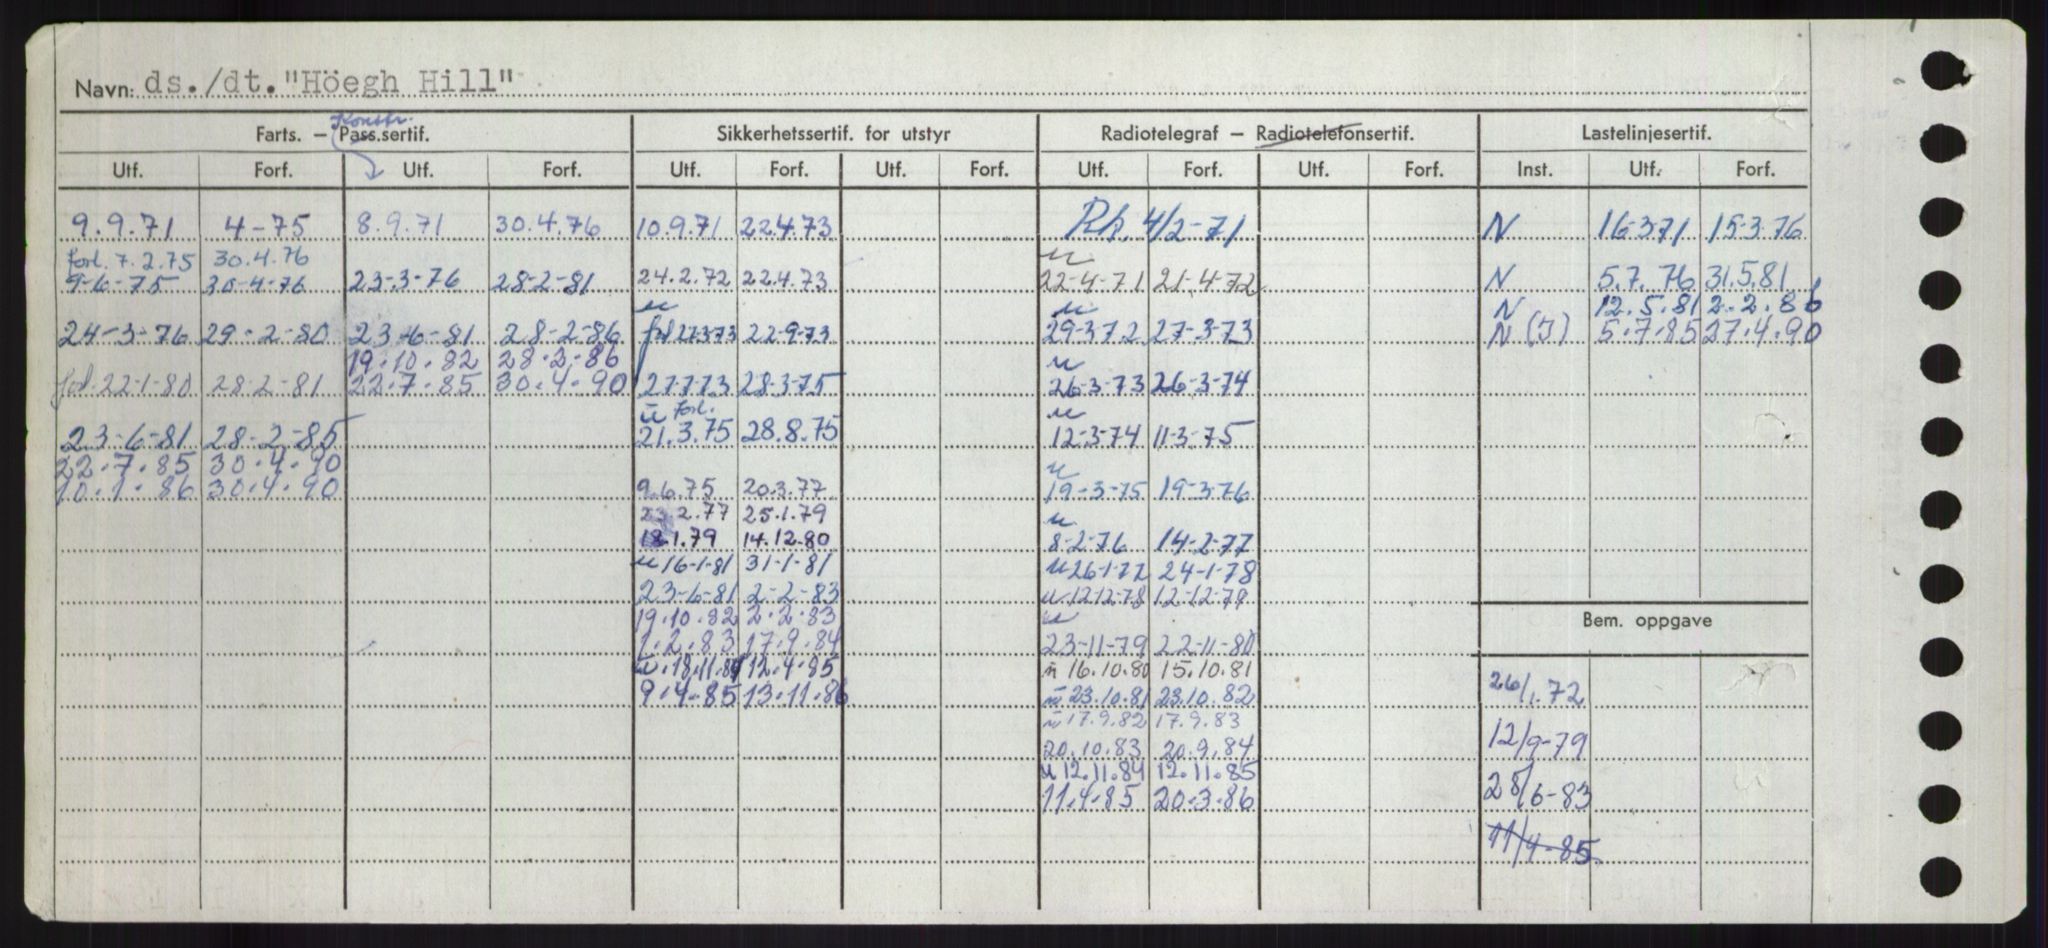 Navn: ds./dt."Höegh Hill"
Konstr.
Farts. — Pass.sertif. Sikkerhetssertif. for utstyr Radiotelegraf — Radiotelefonsertif. Lastelinjesertif.
Utf. Forf. Utf. Forf. Utf. Forf. Utf. Forf. Utf. Forf. Utf. Forf. Inst. Utf. Forf.
9.9.71 4-75 8.9.71 30.4.76 10.9.71 22.4.73 4/2-71 N 16-3-71 15-3.76
forl. 7.2.75 30.4.76 u
9-6-75 30-4-76 23-3-76 28-2-81 24.2.72 22.4.73 22-4-71 21-4-72 N 5.7.76 31.5.81
u u N 12.5.81 2.2.86
24-3-76 29-2-80 23-6-81 28-2-86 22-9-73 29-3-72 27-3-73 N (I) 5.7.85 27.4.90
19.10.82 28.2.86 u
22-1-80 28-2-81 22.7.85 30.4.90 28-3-75 26-3-73 26-3-74
u forl. u
23-6-81 28-2-85 21.3.75 28.8.75 12-3-74 11-3-75
22.7.85 30.4.90 u
10.1.86 30.4.90 9.6.75 20.3.77 19-3-75 19-3-76
23.2.77 25.1.79 u
18.1.79 14.12.80 8-2-76 14-2-77
u 16-1-81 31-1-81 u 26-1-77 24-1-78
23-6-81 2-2-83 u 12-12-78 12-12-79
19.10.82 2.2.83 u
1.2.83 17.9.84 23-11-79 22-11-80 Bem. oppgave
u 18.11.84 12.4.85 u 16.10.80 15.10.81
9.4.85 13.11.86 u 23.10.81 23.10.82 26/1.72
u 17.9.82 17.9.83
20.10.83 20.9.84 12/9-79
u 12.11.84 12.11.85
11.4.85 20.3.86 28/6-83
11/4-85